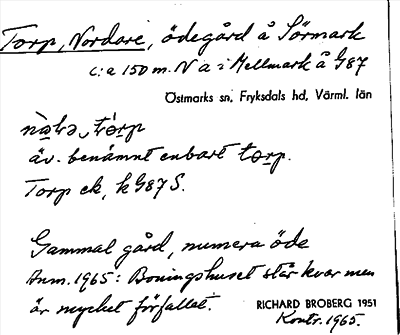 Torp, Nordare, ödegård å Sörmark
c:a 150 m. N a i Mellmark å G87
Östmarks sn, Fryksdals hd, Värml. län
tɷrp
äv. benämnt enbart tɷrp.
Torp ek, k G87 S.
Gammal gård, numera öde
Anm. 1965: Boningshuset står kvar men
är mycket förfallet.
RICHARD BROBERG 1951
Kontr. 1965.